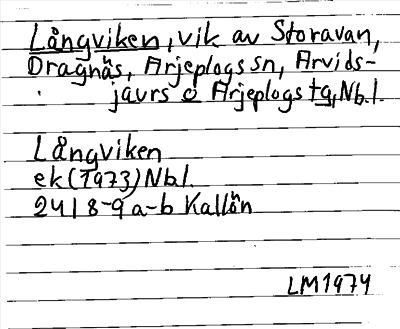 Långviken, vik av Storavan,
Dragnäs, Arjeplogs sn, Arvids-
jaurs o Arjeplogs tg, Nbl.
Långviken
ek (1973) Nbl.
24I 8-9 a-b Kallön
LM1974